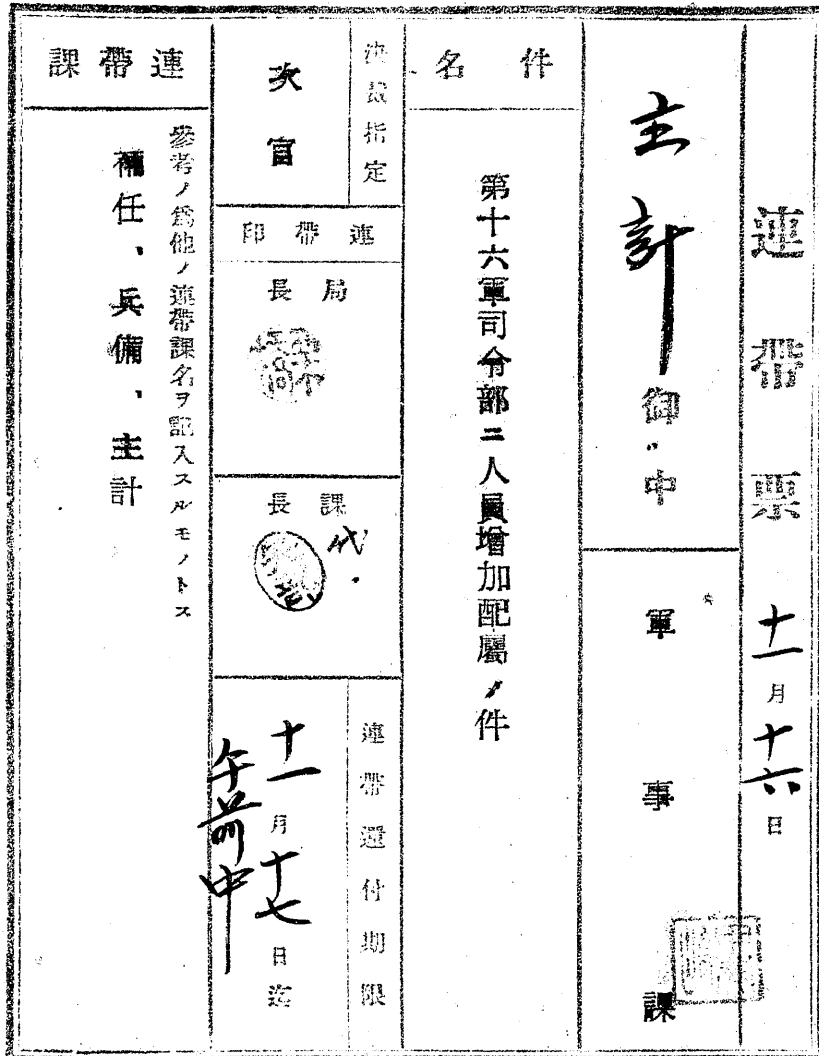 連帶票 十一月十六日
主計御中
軍事課
件名
第十六軍司令部ニ人員增加配屬ノ件
決裁指定
次官
連帶印
局長
課長
代
連帶還付期限
十一月十七日迄
午前中
連帶課
參考ノ爲他ノ連帶課名ヲ記入スルモノトス
補任、兵備、主計